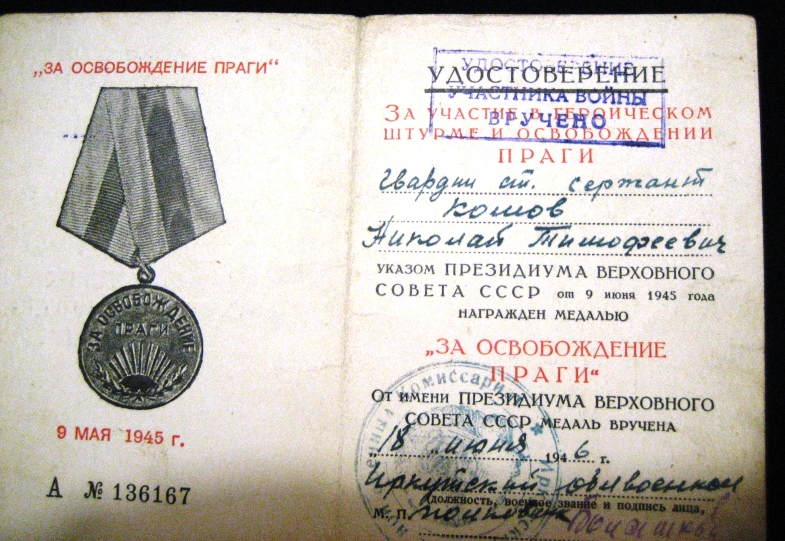 „ЗА ОСВОБОЖДЕНИЕ ПРАГИ“
ЗА ОСВОБОЖДЕНИЕ
ПРАГИ
9 МАЯ 1945 г.
А № 136167
УДОСТОВЕРЕНИЕ
УДОСТОВЕРЕНИЕ
УЧАСТНИКА ВОЙНЫ
ВРУЧЕНО
ЗА УЧАСТИЕ В ГЕРОИЧЕСКОМ
ШТУРМЕ И ОСВОБОЖДЕНИИ
ПРАГИ
Гвардии ст. сержант
Комов
Николай Тимофеевич
УКАЗОМ ПРЕЗИДИУМА ВЕРХОВНОГО
СОВЕТА СССР от 9 июня 1945 года
НАГРАЖДЕН МЕДАЛЬЮ
„ЗА ОСВОБОЖДЕНИЕ
ПРАГИ“
От имени ПРЕЗИДИУМА ВЕРХОВНОГО
СОВЕТА СССР МЕДАЛЬ ВРУЧЕНА
„18 „ июня 1946 г.
Иркутский облвоенком
(должность, военное звание и подпись лица,
М. П. полковник
Комиссариат